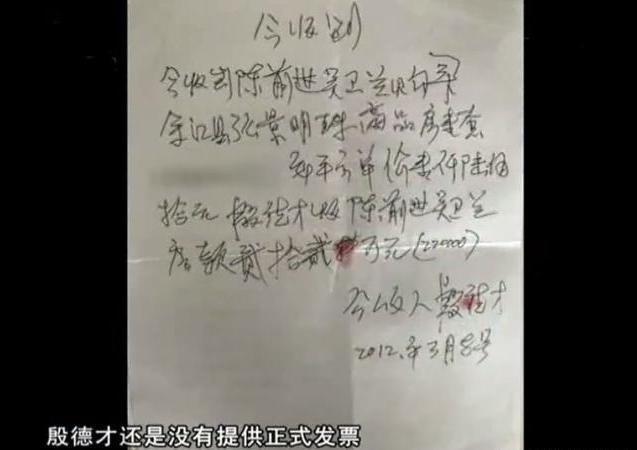 今收到
今收到陈前进吴卫兰购
余江县张景明珠商品房壹套
每平方单价壹仟陆佰
拾元 殷德才收陈前进吴卫兰
房款贰拾贰万元(220000)
今收人殷德才
2012.年3月8号
殷德才还是没有提供正式发票